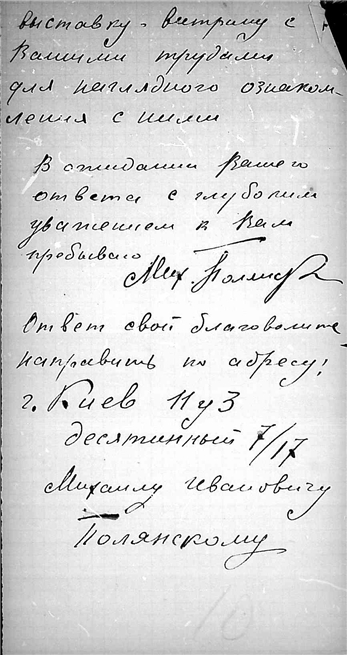 выставку-витрину с
Вашими трудами
для наглядного ознаком-
ления с ними
В ожидании Вашего
ответа с глубоким
уважением к Вам
пребываю
Мих. Полянск
Ответ свой благоволите
направить по адресу:
г. Киев 11 у 3
десятинный 7/17
Михаилу Ивановичу
Полянскому
10